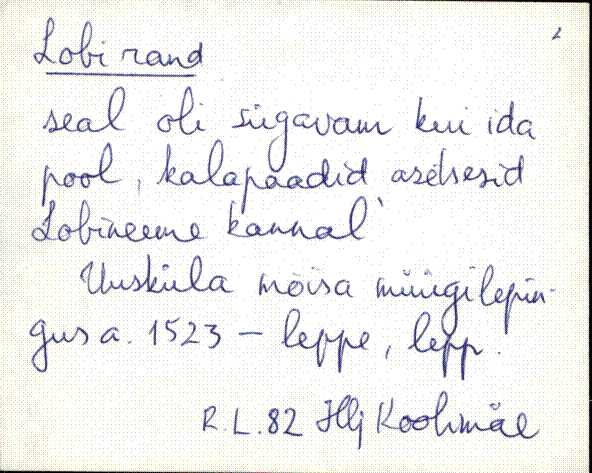 2
Lobi rand
seal oli sügavam kui ida
pool, kalapaadid asetsesid
Lobineeme kannal
Uusküla mõisa müügilepin-
gus a. 1523 – leppe, lepp.
R.L. 82 Hlj Koolimäe